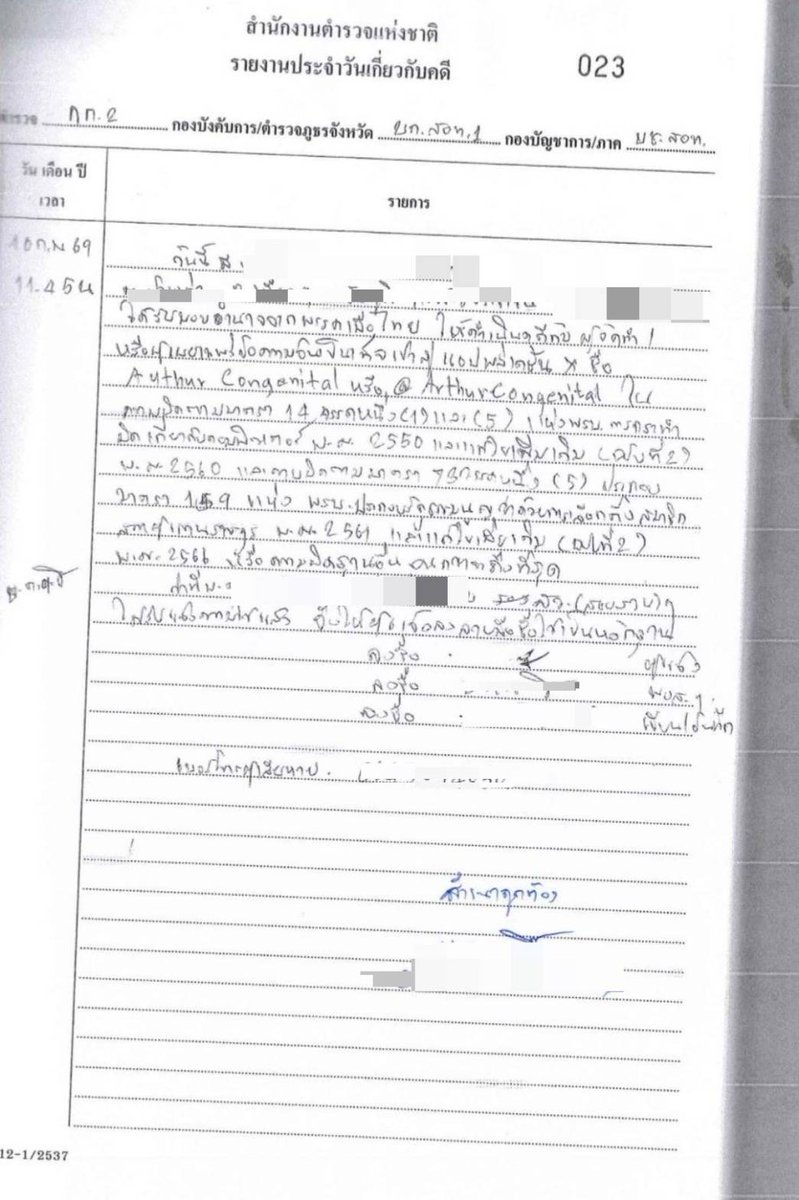 สำนักงานตำรวจแห่งชาติ
รายงานประจำวันเกี่ยวกับคดี 023
กก.2 กองบังคับการ/ตำรวจภูธรจังหวัด บก.สอท.1 กองบัญชาการ/ภาค บช.สอท.
วัน เดือน ปี
เวลา
รายการ
16 ก.พ 69
11.45 น
วันนี้
ได้รับมอบอำนาจจากพรรคเพื่อไทย ให้ดำเนินคดีกับ ผู้จัดทำ/
หรือผู้เผยแพร่ข้อความอันเป็นเท็จเข้าสู่ แอปพลิเคชั่น X ชื่อ
Authur Congenital หรือ @ArthurCongenital ใน
ความผิดตามมาตรา 14 วรรคหนึ่ง (1) และ (5) แห่งพรบ. การกระทำ
ผิดเกี่ยวกับคอมพิวเตอร์ พ.ศ. 2550 และแก้ไขเพิ่มเติม (ฉบับที่ 2)
พ.ศ 2560 และความผิดตามมาตรา 73 วรรคหนึ่ง (5) ประกอบ
มาตรา 159 แห่ง พรบ.ประกอบรัฐธรรมนูญว่าด้วยการเลือกตั้งสมาชิก
สภาผู้แทนราษฎร พ.ศ. 2561 และแก้ไขเพิ่มเติม (ฉบับที่ 2)
พ.ศ. 2566 หรือความผิดฐานอื่น จนกว่าคดีถึงที่สุด
ว่าที่ พ. (สอบสวน)ฯ
ได้รับแจ้งความไว้แล้ว จึงให้ผู้แจ้งลงลายมือชื่อไว้เป็นหลักฐาน
ลงชื่อ ผู้แจ้ง
ลงชื่อ พงส.ฯ
ลงชื่อ เขียน/บันทึก
เบอร์โทรศัพท์
สำเนาถูกต้อง
12-1/2537